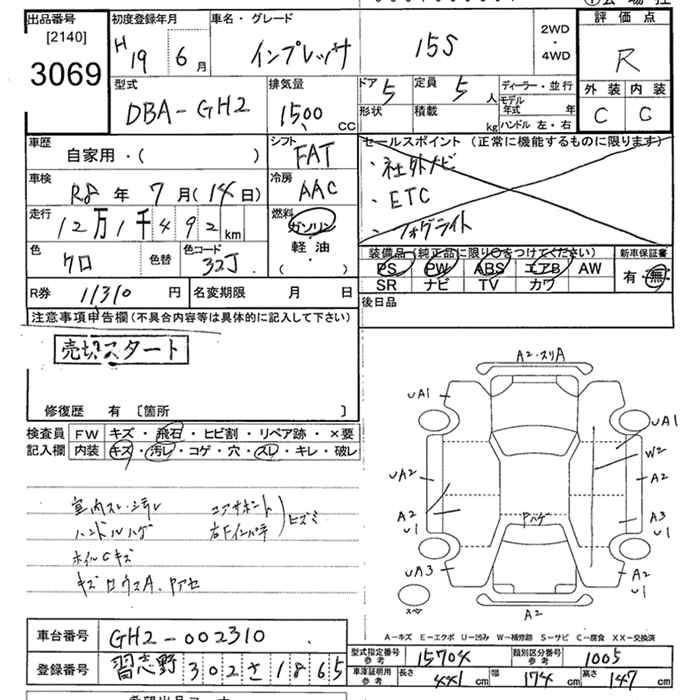 出品番号
[2140]
3069
初度登録年月
H19 6月
車名・グレード
インプレッサ 15S
2WD
・
4WD
評価点
R
外装 内装
C C
型式
DBA-GH2
排気量
1500 CC
ドア 5
定員 5人
形状
積載 kg
ディーラー・並行
モデル年式 年
ハンドル 左・右
車歴
自家用・( )
シフト
FAT
車検
R8年7月(14日)
冷房
AAC
走行
12万1千492km
燃料
ガソリン
軽油
( ・ )
色
クロ
色替
色コード
32J
R券 11310円
名変期限 月 日
セールスポイント(正常に機能するものに限ります)
・社外ナビ
・ETC
・フォグライト
装備品(純正品に限り○をつけてください)
PS PW ABS エアB AW
SR ナビ TV カワ
新車保証書
有・無
後日品
注意事項申告欄(不具合内容等は具体的に記入して下さい)
売切スタート
修復歴 有 [箇所 ]
検査員記入欄
FW キズ・飛石・ヒビ割・リペア跡・×要
内装 キズ・汚レ・コゲ・穴・スレ・キレ・破レ
室内スレ・汚レ
ハンドルハゲ
ホイルCキズ
コアサポート
右Fインパネ
ヒズミ
A2・スリA
UA1
UA1
W2
UA2
A2
A2
U1
A3
U1
Pハゲ
UA3
A2
U1
スペア
A2
A-キズ E-エクボ U-凹み W-補修跡 S-サビ C-腐食 XX-交換済
車台番号 GH2-002310
登録番号 習志野302さ1865
型式指定番号 参考 15704
類別区分番号 参考 1005
車庫証明用 参考 長さ 441cm 幅 174cm 高さ 147cm